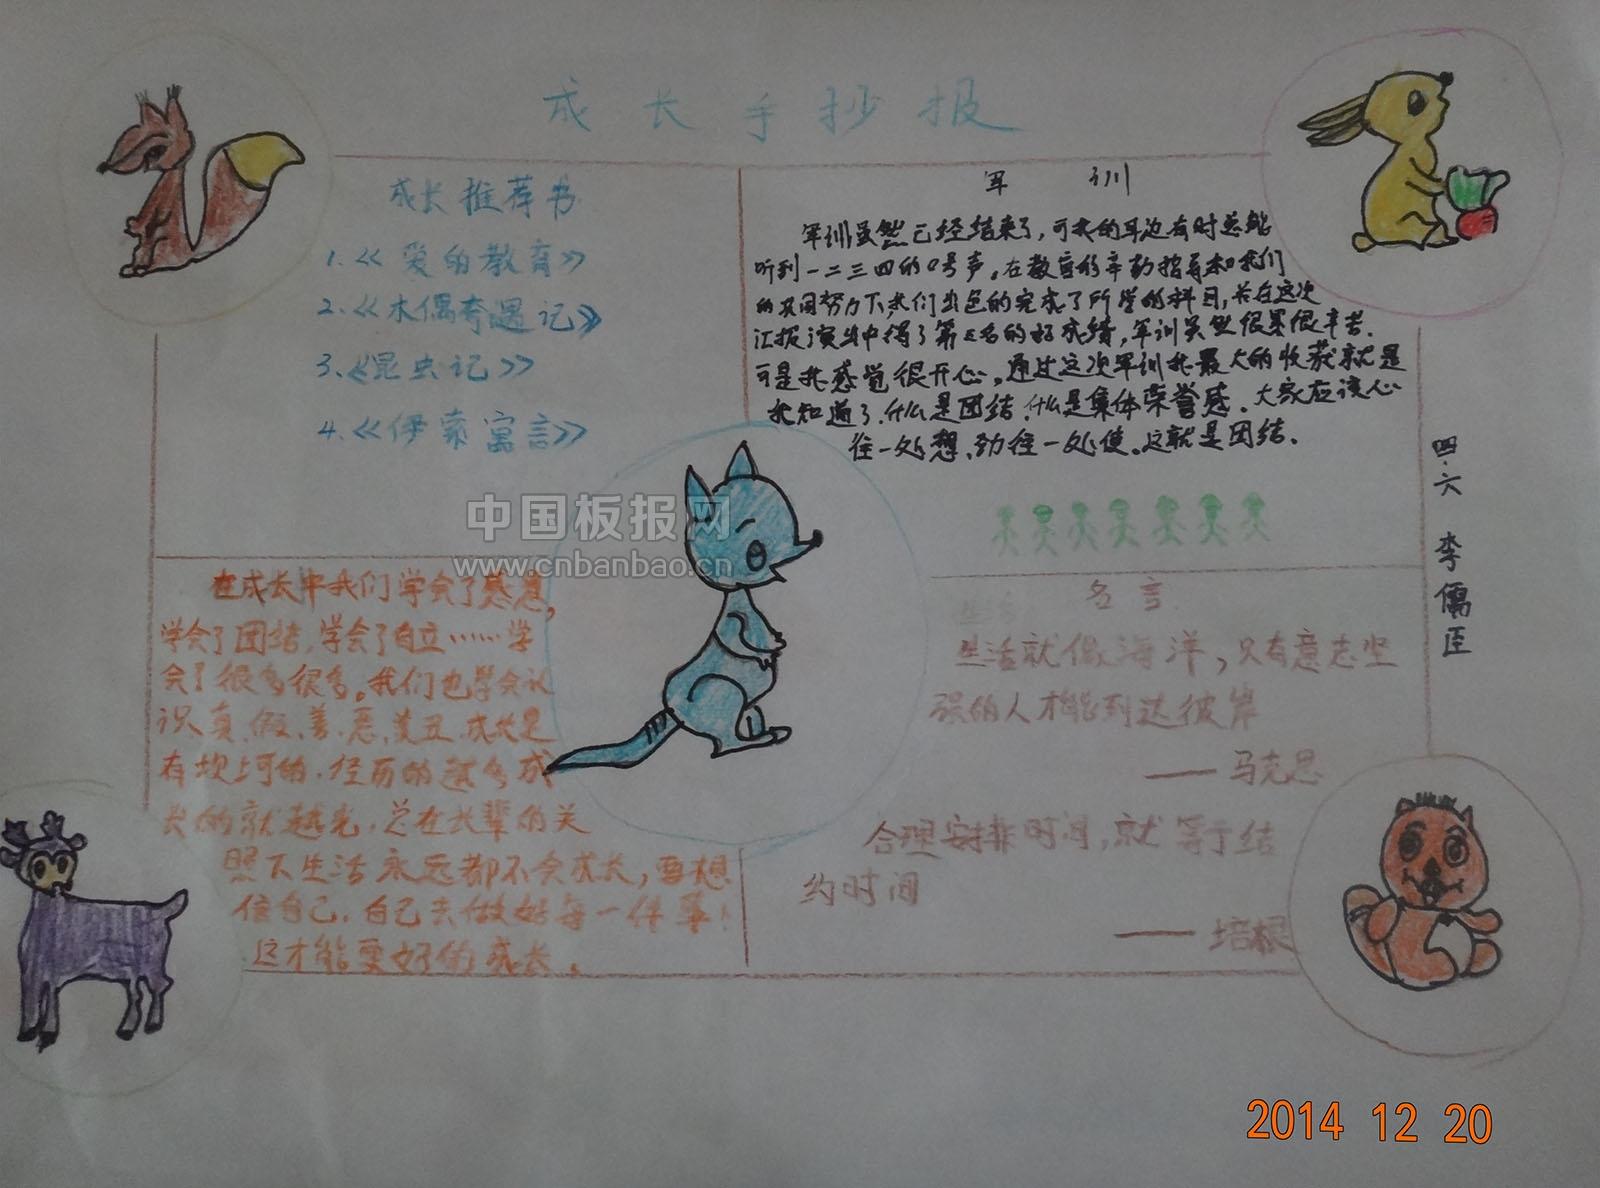 成长手抄报
成长推荐书
1.《爱的教育》
2.《木偶奇遇记》
3.《昆虫记》
4.《伊索寓言》
军训
军训虽然已经结束了,可我的耳边有时总能
听到一二三四的口号声。在教官的辛勤指导和我们
的共同努力下,我们出色的完成了所学的科目,并在这次
汇报演出中得了第 名的好成绩,军训虽然很累很辛苦.
可是我感觉很开心。通过这次军训我最大的收获就是
我知道了.什么是团结.什么是集体荣誉感.大家应该心
往一处想、劲往一处使。这就是团结.
四.六 李儒臣
中国板报网
www.cnbanbao.cn
在成长中我们学会了感恩,
学会了团结,学会了自立……学
会了很多很多。我们也学会认
识真、假、善、恶、美丑.成长是
有坎坷的.经历的越多成
长的就越 .总在长辈的关
照下生活永远都不会成长,要想
信自己.自己去做好每一件事!
这才能更好的成长。
名言
生活就像海洋,只有意志坚
强的人才能到达彼岸
——马克思
合理安排时间,就等于结
约时间
——培根
2014 12 20